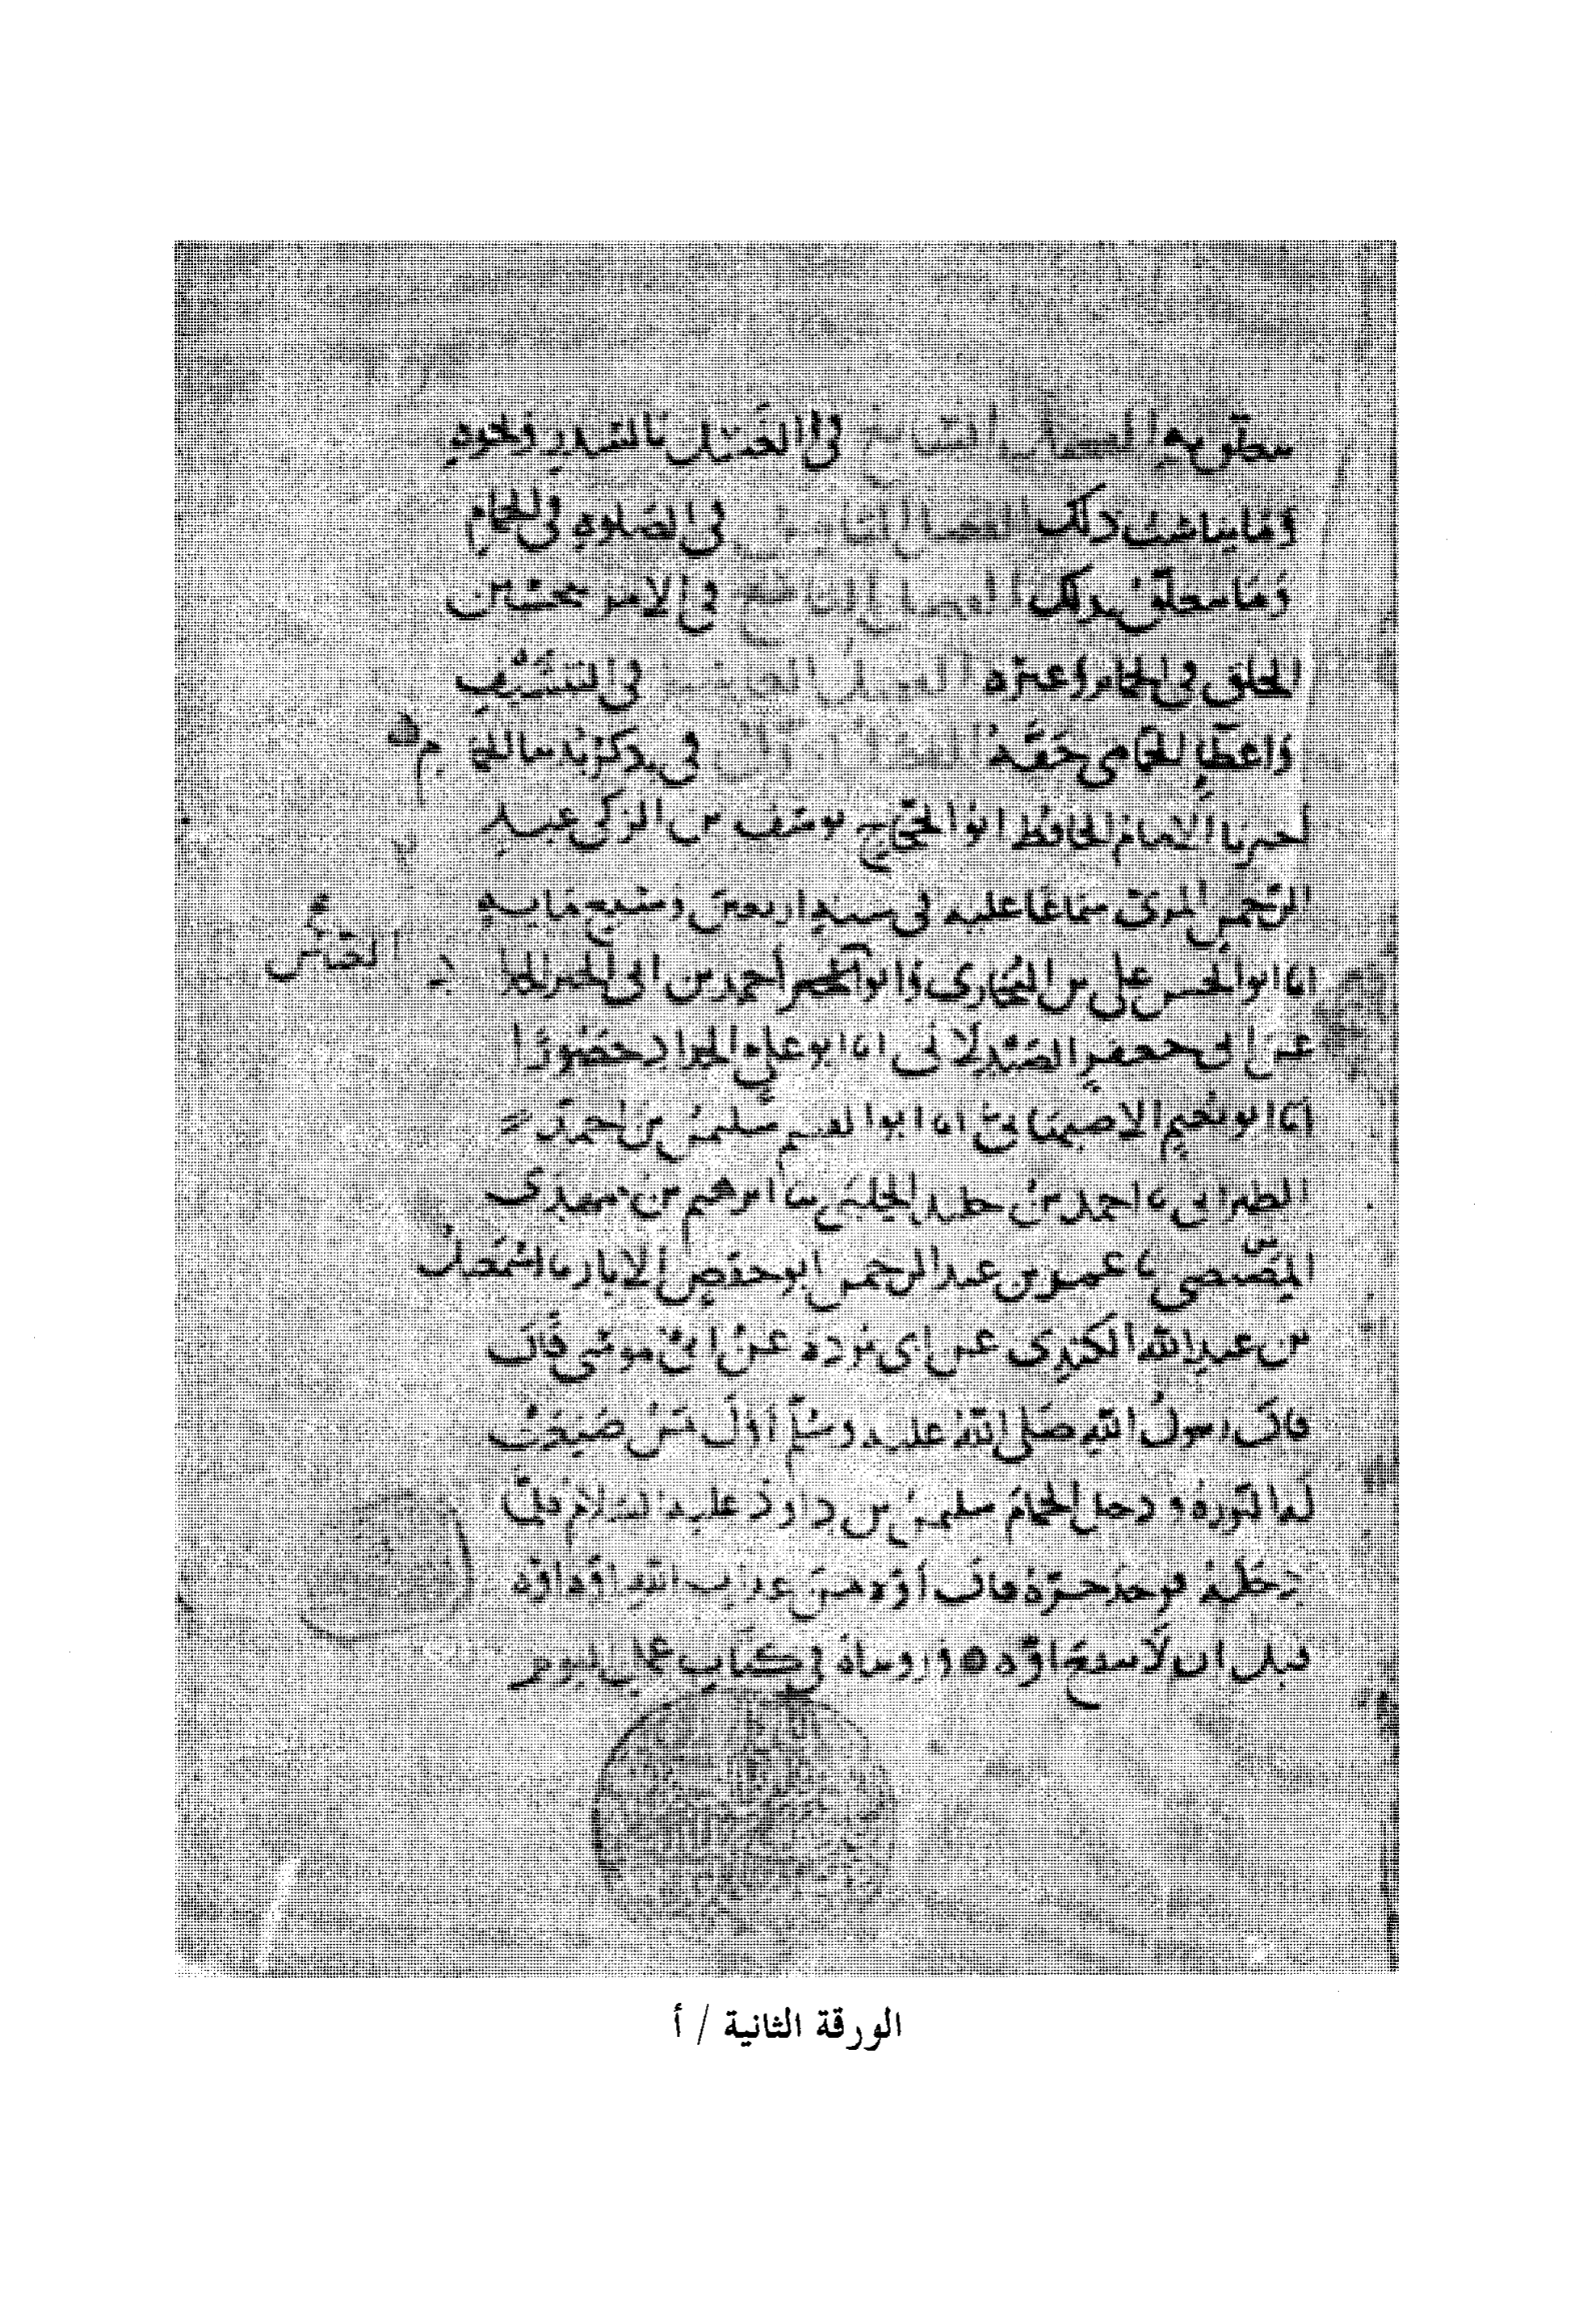 يتعلق به الفصل السابع في الغسل بالسدر ونحوه
وما يناسب ذلك الفصل الثامن في الصلاوة في الحمام
وما يتعلق بذلك الفصل التاسع في الامر بتحسين
الخلق في الحمام وغيره الفصل العاشر في التنشيف
واعطاء الحمامي حقه في ذكر
اخبرنا الامام الحافظ ابو الحجاج يوسف بن الزكي عبد
الرحمن المزي سماعا عليه في سنة اربعين وسبع مايه
انا ابو الحسن علي بن البخاري وابو احمد بن ابي الخير
عن ابي جعفر الصيدلاني انا ابو علي الحداد حضورا
انا ابو نعيم الاصبهاني انا ابو القسم سليمن بن احمد
الطبراني ثنا احمد بن خليد الحلبي ثنا ابرهيم بن مهدي
المصيصي ثنا عمر بن عبد الرحمن ابو حفص الابار ثنا اسمعيل
بن عبد الله الكندي عن ابي بردة عن ابي موسى قال
قال رسول الله صلى الله عليه وسلم اول من صنعت
له النورة ودخل الحمام سليمن بن داود عليه السلام فلما
دخله فوجد حره قال اوه من عذاب الله اوه اوه
قبل ان لا ينفع اوه ورويناه في كتاب عمل اليوم
الورقة الثانية / أ